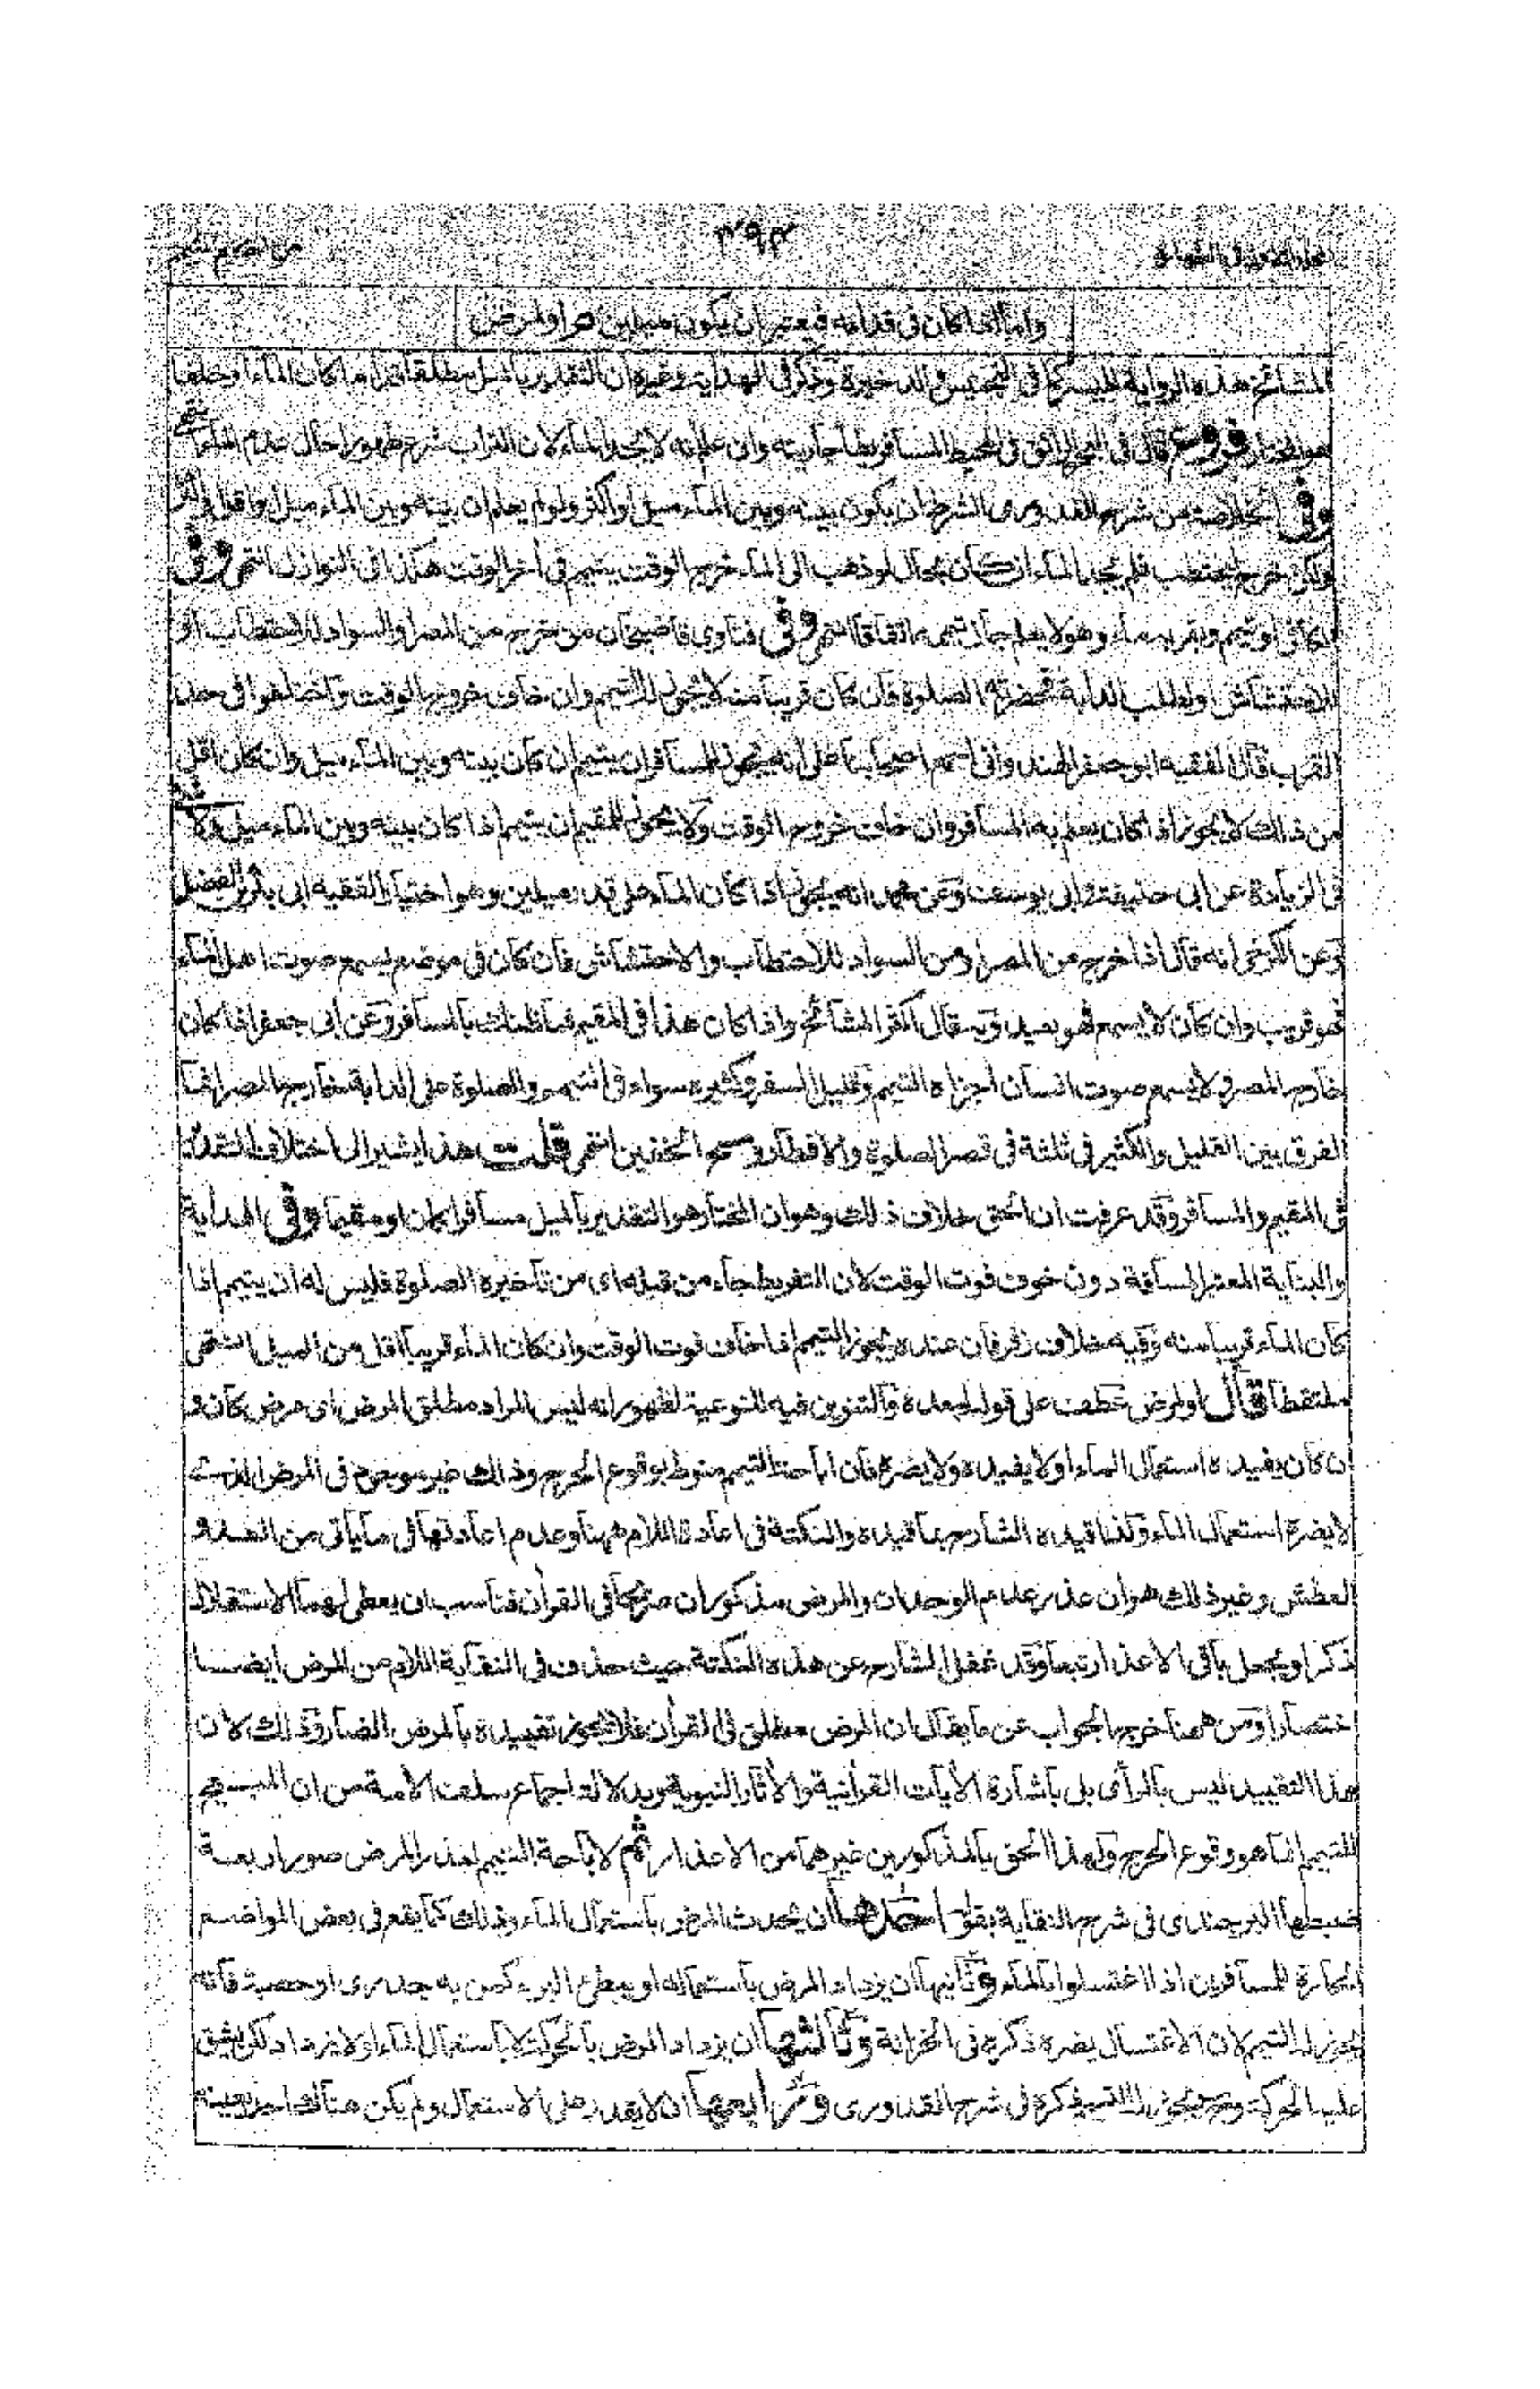 ٤٩٣
واما اذا كان فى قدامه فيعتبر ان يكون ميلين هو او لمرض
المشائخ هذه الرواية لليسر كما فى التجنيس والذخيرة وذكر فى الهداية وغيره ان التقدير بالميل مطلقا قداما كان الماء او خلفا
هو المختار فروع قال فى البحر الرائق فى المحيط المسافر يطأ جاريته وان علم انه لا يجد الماء لان التراب شرع طهورا حال عدم الماء انتهى
وفى الخلاصة من شرح القدورى الشرط ان يكون بينه وبين الماء ميل او اكثر ولو لم يعلم ان بينه وبين الماء ميل او اقل او اكثر
ولكن خرج ليحتطب فلم يجد الماء ان كان بحال لو ذهب الى الماء خرج الوقت يتيمم فى آخر الوقت هكذا فى النوازل انتهى وفى
لو تيمم وبقربه ماء وهو لا يعلم جاز تيممه اتفاقا انتهى وفى فتاوى قاضيخان من خرج من المصر او السواد للاحتطاب او
للاحتشاش او لطلب الدابة فحضرته الصلوة فان كان قريبا منه لا يجوز له التيمم وان خاف خروج الوقت واختلفوا فى حد
القرب قال الفقيه ابو جعفر الهندوانى اجمع اصحابنا على انه يجوز للمسافر ان يتيمم ان كان بينه وبين الماء ميل وان كان اقل
من ذلك لا يجوز اذا كان يعلم به المسافر وان خاف خروج الوقت ولا يجوز للمقيم ان يتيمم اذا كان بينه وبين الماء ميل ولا
فى الزيادة عن ابى حنيفة وابى يوسف وعن محمد انه يجوز اذا كان الماء على قدر ميلين وهو اختيار الفقيه ابى بكر بن الفضل
وعن الكرخى انه قال اذا خرج من المصر او من السواد للاحتطاب والاحتشاش فان كان فى موضع يسمع صوت اهل الماء
فهو قريب وان كان لا يسمع فهو بعيد وبه قال اكثر المشائخ واذا كان هذا فى المقيم فما ظنك بالمسافر وعن ابى جعفر اذا كان
خارج المصر ولا يسمع صوت انسان اجزاه التيمم وقليل السفر وكثيره سواء فى التيمم والصلوة على الدابة خارج المصر انما
الفرق بين القليل والكثير فى ثلثة فى قصر الصلوة والافطار ومسح الخفين انتهى قلت هذا يشير الى اختلاف التقدير
فى المقيم والمسافر وقد عرفت ان الحق خلاف ذلك وهو ان المختار هو التقدير بالميل مسافرا كان او مقيما وفى الهداية
والبناية المعتبر المسافة دون خوف فوت الوقت لان التفريط جاء من قبله اى من تأخيره الصلوة فليس له ان يتيمم اذا
كان الماء قريبا منه وفيه خلاف زفر فان عنده يجوز التيمم اذا خاف فوت الوقت وان كان الماء قريبا اقل من الميل انتهى
ملتقطا قال او لمرض عطف على قوله لبعده والتنوين فيه للنوعية لظهور انه ليس المراد مطلق المرض اى مرض كان و
ان كان يفيده استعمال الماء او لا يفيده ولا يضره فان اباحة التيمم منوط بوقوع الحرج وذلك غير موجود فى المرض الذى
لا يضره استعمال الماء ولذا قيده الشارح بما قيده والنكتة فى اعادة اللام ههنا وعدم اعادتها فى ما يأتى من العدو
العطش وغير ذلك هو ان عذر عدم الوجدان والمرض مذكوران صريحا فى القرآن فناسب ان يعطى لهما الاستقلال
ذكرا ويجعل باقى الاعذار تبعا وقد غفل الشارح عن هذه النكتة حيث حذف فى النقاية اللام من المرض ايضا
اختصارا ومن ههنا خرج الجواب عن ما يقال ان المرض مطلق فى القرآن فلا يجوز تقييده بالمرض الضار وذلك لان
هذا التقييد ليس بالرأى بل باشارة الآيات القرآنية والآثار النبوية وبدلالة اجماع سلف الامة من ان المبيح
للتيمم انما هو وقوع الحرج ولهذا الحق بالمذكورين غيرهما من الاعذار ثم لاباحة التيمم لعذر المرض صور اربعة
ضبطها البرجندى فى شرح النقاية بقوله احدها ان يحدث المرض باستعمال الماء وذلك كما يقع فى بعض المواضع
الحارة للمسافرين اذا اغتسلوا بالماء وثانيها ان يزداد المرض باستعماله او يبطئ البرء كمن به جدرى او حصبة فانه
يجوز له التيمم لان الاغتسال يضره ذكره فى الخزانة وثالثها ان يزداد المرض بالحركة لا باستعمال الماء او لا يزداد لكن يشق
عليه الحركة وح يجوز له التيمم ذكره فى شرح القدورى ورابعها ان لا يقدر على الاستعمال ولم يكن هناك احد يعينه